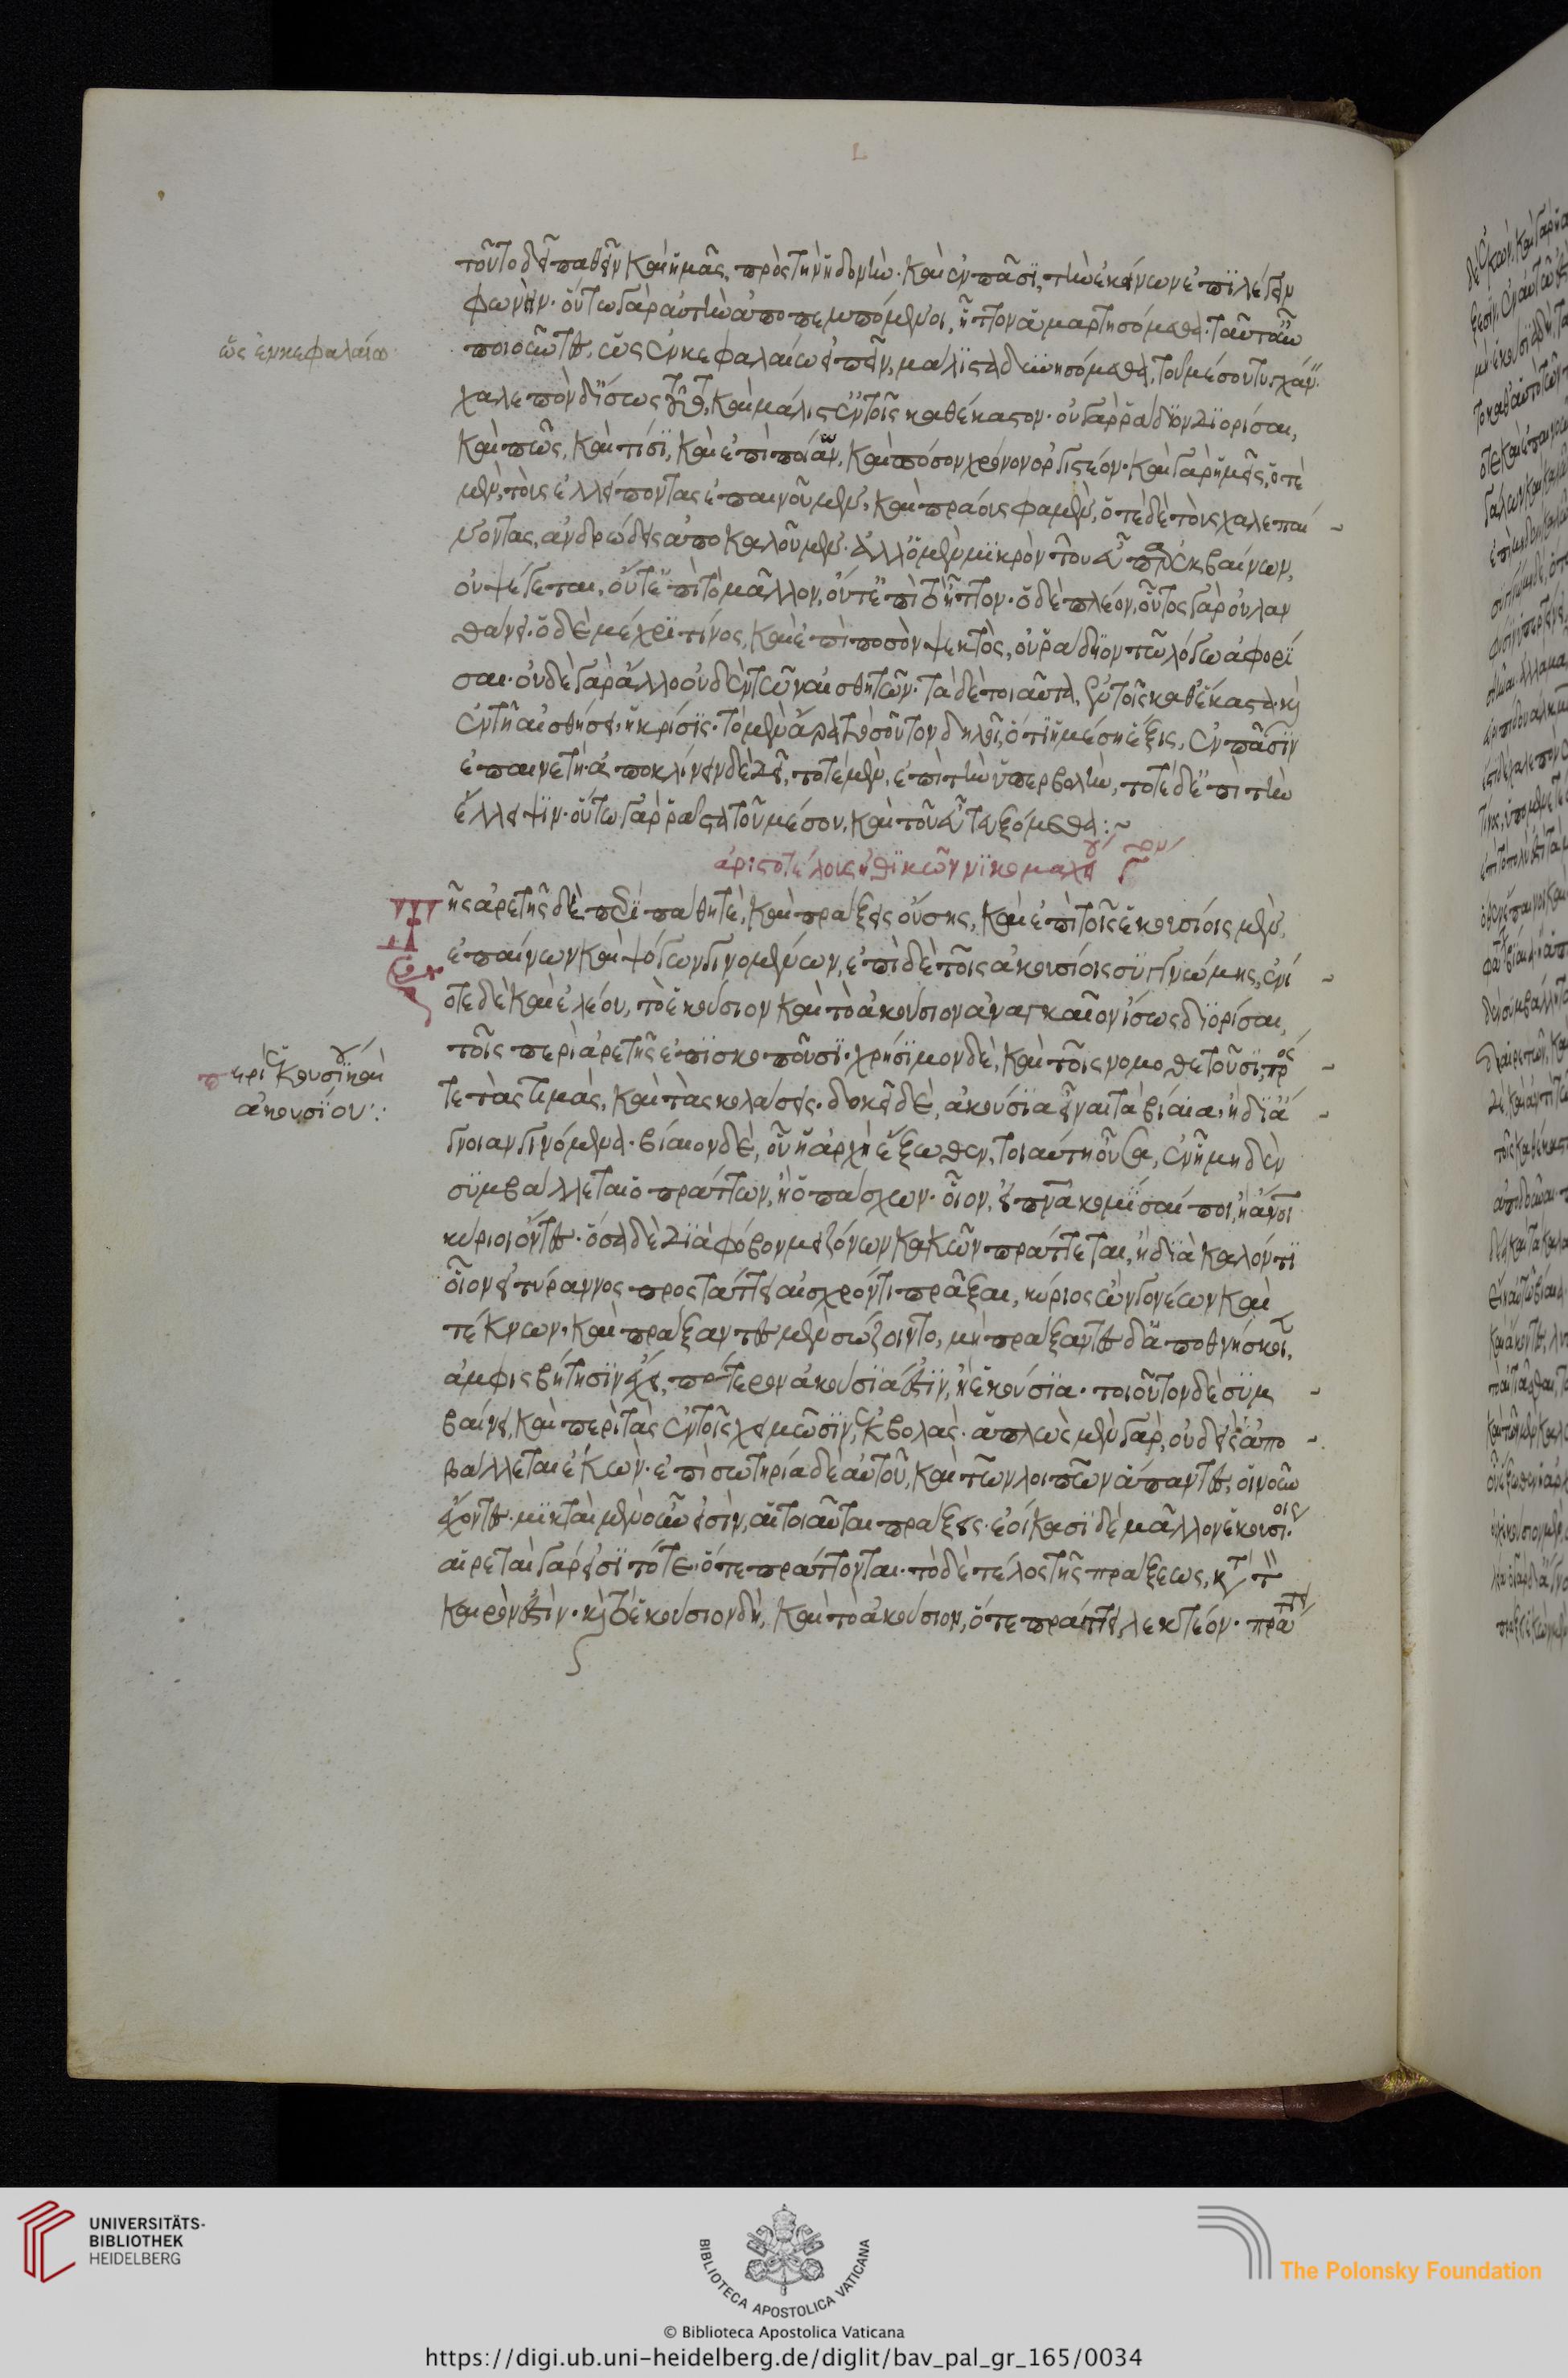 τοῦτο δεῖ παθεῖν καὶ ἡμᾶς, πρὸς τὴν ἡδονὴν. καὶ ἐν πᾶσι, τὴν ἐκείνων ἐπιλέγειν
φωνήν. οὕτω γὰρ αὐτὴν ἀποπεμπόμενοι, ἧττον ἁμαρτησόμεθα. ταῦτ' ἂν
ὡς ἐν κεφαλαίω
ποιοῦντες, ὡς ἐν κεφαλαίω εἰπεῖν, μάλιστα δυνησόμεθα, τοῦ μέσου τυγχάν
χαλεπὸν δ' ἴσως τοῦτο, καὶ μάλιστ' ἐν τοῖς καθέκαστον. οὐ γὰρ ῥάδιον διορίσαι,
καὶ πῶς, καὶ τίσι, καὶ ἐπὶ ποίων, καὶ πόσον χρόνον ὀργιστέον. καὶ γὰρ ἡμεῖς, ὁτὲ
μὲν, τοὺς ἐλλείποντας ἐπαινοῦμεν, καὶ πράους φαμὲν, ὁτὲ δὲ τοὺς χαλεπαί
νοντας, ἀνδρώδεις ἀποκαλοῦμεν. ἀλλ' ὁ μὲν μικρὸν τοῦ εὖ παρεκβαίνων,
οὐ ψέγεται, οὔτ' ἐπὶ τὸ μᾶλλον, οὔτ' ἐπὶ τὸ ἧττον. ὁ δὲ πλέον, οὗτος γὰρ οὐ λαν
θάνει. ὁ δὲ μέχρι τίνος, καὶ ἐπὶ ποσὸν ψεκτὸς, οὐ ῥάδιον τῶ λόγω ἀφορί
σαι. οὐδὲ γὰρ ἄλλο οὐδὲν τῶν αἰσθητῶν. τὰ δὲ τοιαῦτα, ἐν τοῖς καθέκαστα. καὶ
ἐν τῇ αἰσθήσει, ἡ κρίσις. τὸ μὲν ἄρα τοσοῦτον δηλοῖ, ὅτι ἡ μέση ἕξις, ἐν πᾶσιν
ἐπαινετή. ἀποκλίνειν δὲ δεῖ, τοτὲ μὲν, ἐπὶ τὴν ὑπερβολὴν, τοτὲ δ' ἐπὶ τὴν
ἔλλειψιν. οὕτω γὰρ ῥᾷστα τοῦ μέσου, καὶ τοῦ εὖ τευξόμεθα :~
ἀριστοτέλους ἠθικῶν νικομαχεί γ
Τῆς ἀρετῆς δὲ περὶ πάθη τὲ, καὶ πράξεις οὔσης, καὶ ἐπὶ τοῖς ἑκουσίοις μὲν,
ἐπαίνων καὶ ψόγων γινομένων, ἐπὶ δὲ τοῖς ἀκουσίοις συγγνώμης, ἐνί
οτε δὲ καὶ ἐλέου, τὸ ἑκούσιον καὶ τὸ ἀκούσιον ἀναγκαῖον ἴσως διορίσαι,
τοῖς περὶ ἀρετῆς ἐπισκοποῦσι. χρήσιμον δὲ, καὶ τοῖς νομοθετοῦσι, πρός
περὶ ἑκουσίου καὶ
ἀκουσίου :
τε τὰς τιμὰς, καὶ τὰς κολάσεις. δοκεῖ δὲ, ἀκούσια εἶναι τὰ βίαια, ἢ δι' ἄ
γνοιαν γινόμενα. βίαιον δὲ, οὗ ἡ ἀρχὴ ἔξωθεν, τοιαύτη οὖσα, ἐν ᾗ μηδὲν
συμβάλλεται ὁ πράττων, ἢ ὁ πάσχων. οἷον, εἰ πνεῦμα κομίσαί ποι, ἢ ἄνθρωποι
κύριοι ὄντες. ὅσα δὲ διὰ φόβον μειζόνων κακῶν πράττεται, ἢ διὰ καλόν τι
οἷον εἰ τύραννος προστάττει αἰσχρόν τι πρᾶξαι, κύριος ὢν γονέων καὶ
τέκνων. καὶ πράξαντες μὲν σώζοιντο, μὴ πράξαντες δ' ἀποθνήσκοι,
ἀμφισβήτησιν ἔχει, πρότερον ἀκούσιά ἐστιν, ἢ ἑκούσια. τοιοῦτον δὲ συμ
βαίνει, καὶ περὶ τὰς ἐν τοῖς χειμῶσιν, ἐκβολάς. ἁπλῶς μὲν γὰρ, οὐδεὶς ἀπο
βάλλεται ἑκών. ἐπὶ σωτηρία δὲ αὐτοῦ, καὶ τῶν λοιπῶν ἅπαντες, οἱ νοῦν
ἔχοντες. μικταὶ μὲν οὖν εἰσὶν, αἱ τοιαῦται πράξεις. ἐοίκασι δὲ μᾶλλον ἑκουσίοις.
αἱρεταὶ γάρ εἰσι τότε. ὅτε πράττονται. τὸ δὲ τέλος τῆς πράξεως, κατὰ τὸν
καιρὸν ἐστὶν. καὶ τὸ ἑκούσιον δὴ, καὶ τὸ ἀκούσιον, ὅτε πράττει, λεκτέον. πράττει
UNIVERSITÄTS-
BIBLIOTHEK
HEIDELBERG
BIBLIOTECA APOSTOLICA VATICANA
© Biblioteca Apostolica Vaticana
The Polonsky Foundation
https://digi.ub.uni-heidelberg.de/diglit/bav_pal_gr_165/0034